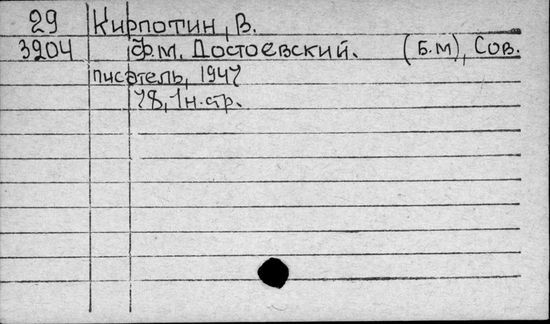 29 Кирпотин, В.
3904 Ф.М. Достоевский. (Б.м), Сов.
писатель, 1947
78, 1 н. стр.